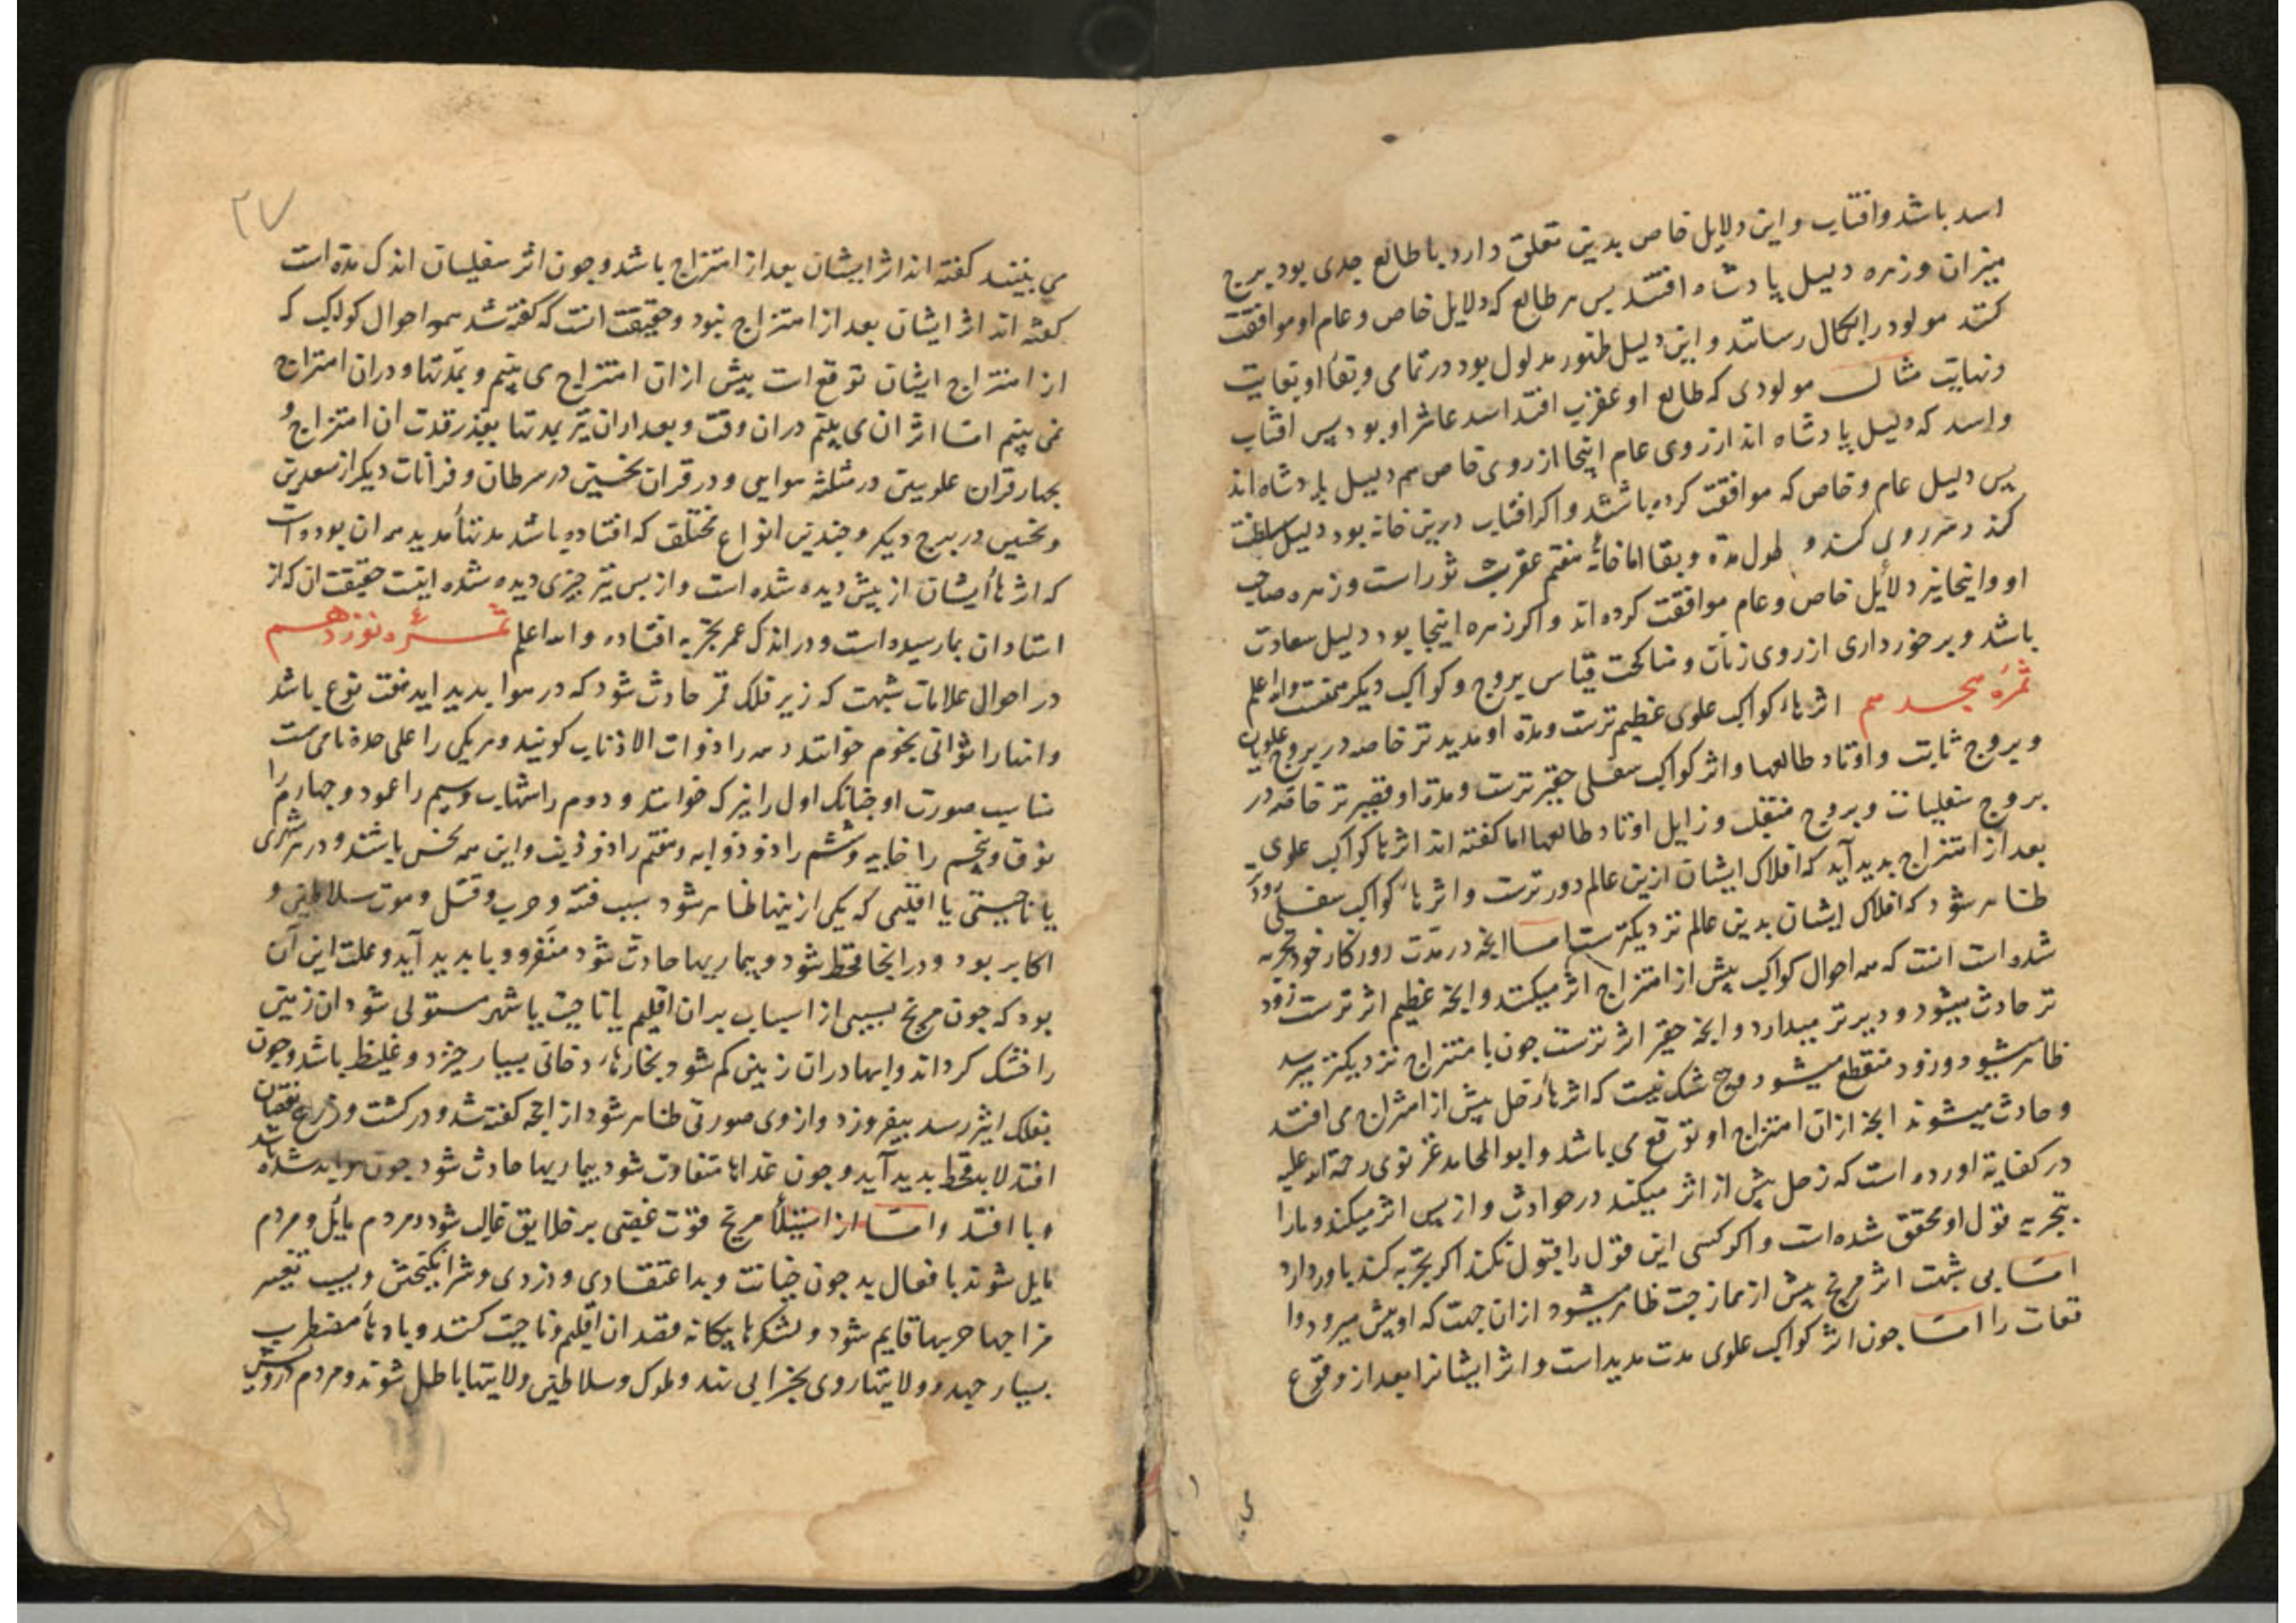 اسد باشد وافتاب واین دلایل خاص بدین تعلق دارد با طالع جدی بود برج
میزان وزهره دلیل پادشاه افتد پس هر طالع که دلایل خاص وعام او موافقت
کند مولود را بکمال رساند واین دلیل ظهور مدلول بود در تمامی وبقا او بغایت
ونهایت مثال مولودی که طالع او عقرب افتد اسد عاشر او بود پس افتاب
واسد که دلیل پادشاه اند از روی عام اینجا از روی خاص هم دلیل پادشاه اند
پس دلیل عام وخاص که موافقت کرده باشند واکر افتاب درین خانه بود دلیل سلطنت
کند روی کند و طول مدة وبقا اما خانهٔ هفتم عقرب ثور است وزهره صاحب
او واینجا نیز دلایل خاص وعام موافقت کرده اند واکر زهره اینجا بود دلیل سعادت
باشد وبرخورداری از روی زنان ومناکحت قیاس بروج وکواکب دیکر واله اعلم
ثمرهٔ هجدهم اثرهاء کواکب علوی عظیم ترست ومدة او مدید تر خاصه در بروج علویان
وبروج ثابت واوتاد طالعها واثر کواکب سفلی حقیر ترست ومدة او قصیر تر خاصه در
بروج سفلیات وبروج منقلب وزایل اوتاد طالعها اما کفته اند اثرها کواکب علوی
بعد از امتزاج بدید آید که افلاک ایشان ازین عالم دور ترست واثرهاء کواکب سفلی زود
ظاهر شود که افلاک ایشان بدین عالم نزدیکترست اما انچه در مدت روزکار خود تجربه
شده است انست که همه احوال کواکب پیش از امتزاج اثر میکنند وانچه عظیم اثر ترست زود
تر حادث میشود ودیرتر میدارد وانچه حقیر اثر ترست جون با متزاج نزدیکتر میرسد
ظاهر میشود وزود منقطع میشود وهیچ شک نیست که اثرهاء زحل پیش از امتزاج می افتد
وحادث میشوند انچه ازان امتزاج او توقع می باشد وابو المحامد غزنوی رحمة اله علیه
در کفایة اورده است که زحل پیش از اثر میکند در حوادث واز پس اثر میکند ومارا
بتجربه قول او محقق شده است واکر کسی این قول را قبول نکند اکر تجربه کند باور دارد
اما بی شبهت اثر مریخ پیش از ممازجت ظاهر میشود ازان جهت که او پیش میرود وا
قعات را اما جون اثر کواکب علوی مدت مدید است واثر ایشانرا بعد از وقوع
۲۷
می بینند کفته اند اثر ایشان بعد از امتزاج باشد وجون اثر سفلیان اندک مدة است
کفته اند اثر ایشان بعد از امتزاج نبود وحقیقت انست که کفته شد همه احوال کواکب که
از امتزاج ایشان توقع است پیش ازان امتزاج می بینم وبمدتها ودران امتزاج
نمی بینم اما اثر ان می بینم دران وقت وبعد ازان نیز بمدتها بقدر قدت ان امتزاج و
بجهار قران علویین در مثلثهٔ هوایی ودر قران نحسین در سرطان وقرانات دیکر از سعدین
ونحسین در برج دیکر وجندین انواع مختلف که افتاده باشد مدتها مدید همه ان بوده است
که اثرهاء ایشان از پیش دیده شده است واز پس نیز جیزی دیده شده اینست حقیقت ان که از
استادان بما رسیده است ودر اندک عمر بتجربه افتاده واله اعلم ثمرهٔ نوزدهم
در احوال علامات شبهت که زیر فلک قمر حادث شود که در هوا بدید اید هفت نوع باشد
وانها را ثوانی نجوم خوانند وهمه را ذوات الاذناب کویند وهر یکی را علی حده نامی هست
مناسب صورت او جنانک اول را نیزک خوانند ودوم را شهاب وسیم را عمود وجهارم را
بوق وپنجم را خابیه وششم را ذو ذوابه وهفتم را ذو ذنب واین همه نحس باشند ودر هر شهری
یا ناحیتی یا اقلیمی که یکی ازینها ظاهر شود سبب فتنه وحرب وقتل وموت سلاطین و
اکابر بود ودر انجا قحط شود وبیماریها حادث شود منفره ووبا بدید آید وعلت این آن
بود که جون مریخ بسببی از اسباب بدان اقلیم یا ناحیت یا شهر مستولی شود ان زمین
را خشک کرداند وابها دران زمین کم شود وبخارهاء دخانی بسیار خیزد وغلیظ باشد وجون
بفلک اثیر رسد بیفروزد واز وی صورتی ظاهر شود از انچه کفته شد ودر کشت وزرع نقصان
افتد لابد قحط بدید آید وجون غداها متفاوت شود بیماریها حادث شود جون هوا بد شده باشد
وبا افتد واما از استیلاء مریخ قوت غضبی بر خلایق غالب شود ومردم مایل ومردم
مایل شوند بافعال بد جون خیانت وبد اعتقادی ودزدی وشر انکیختن وبسبب تغییر
مزاجها حربها قایم شود ولشکرها بیکانه قصد ان اقلیم وناحیت کنند وبادهاء مضطرب
بسیار جهد وولایتها روی بخرابی نهد وملوک وسلاطین ولایتها باطل شوند ومردم درویش